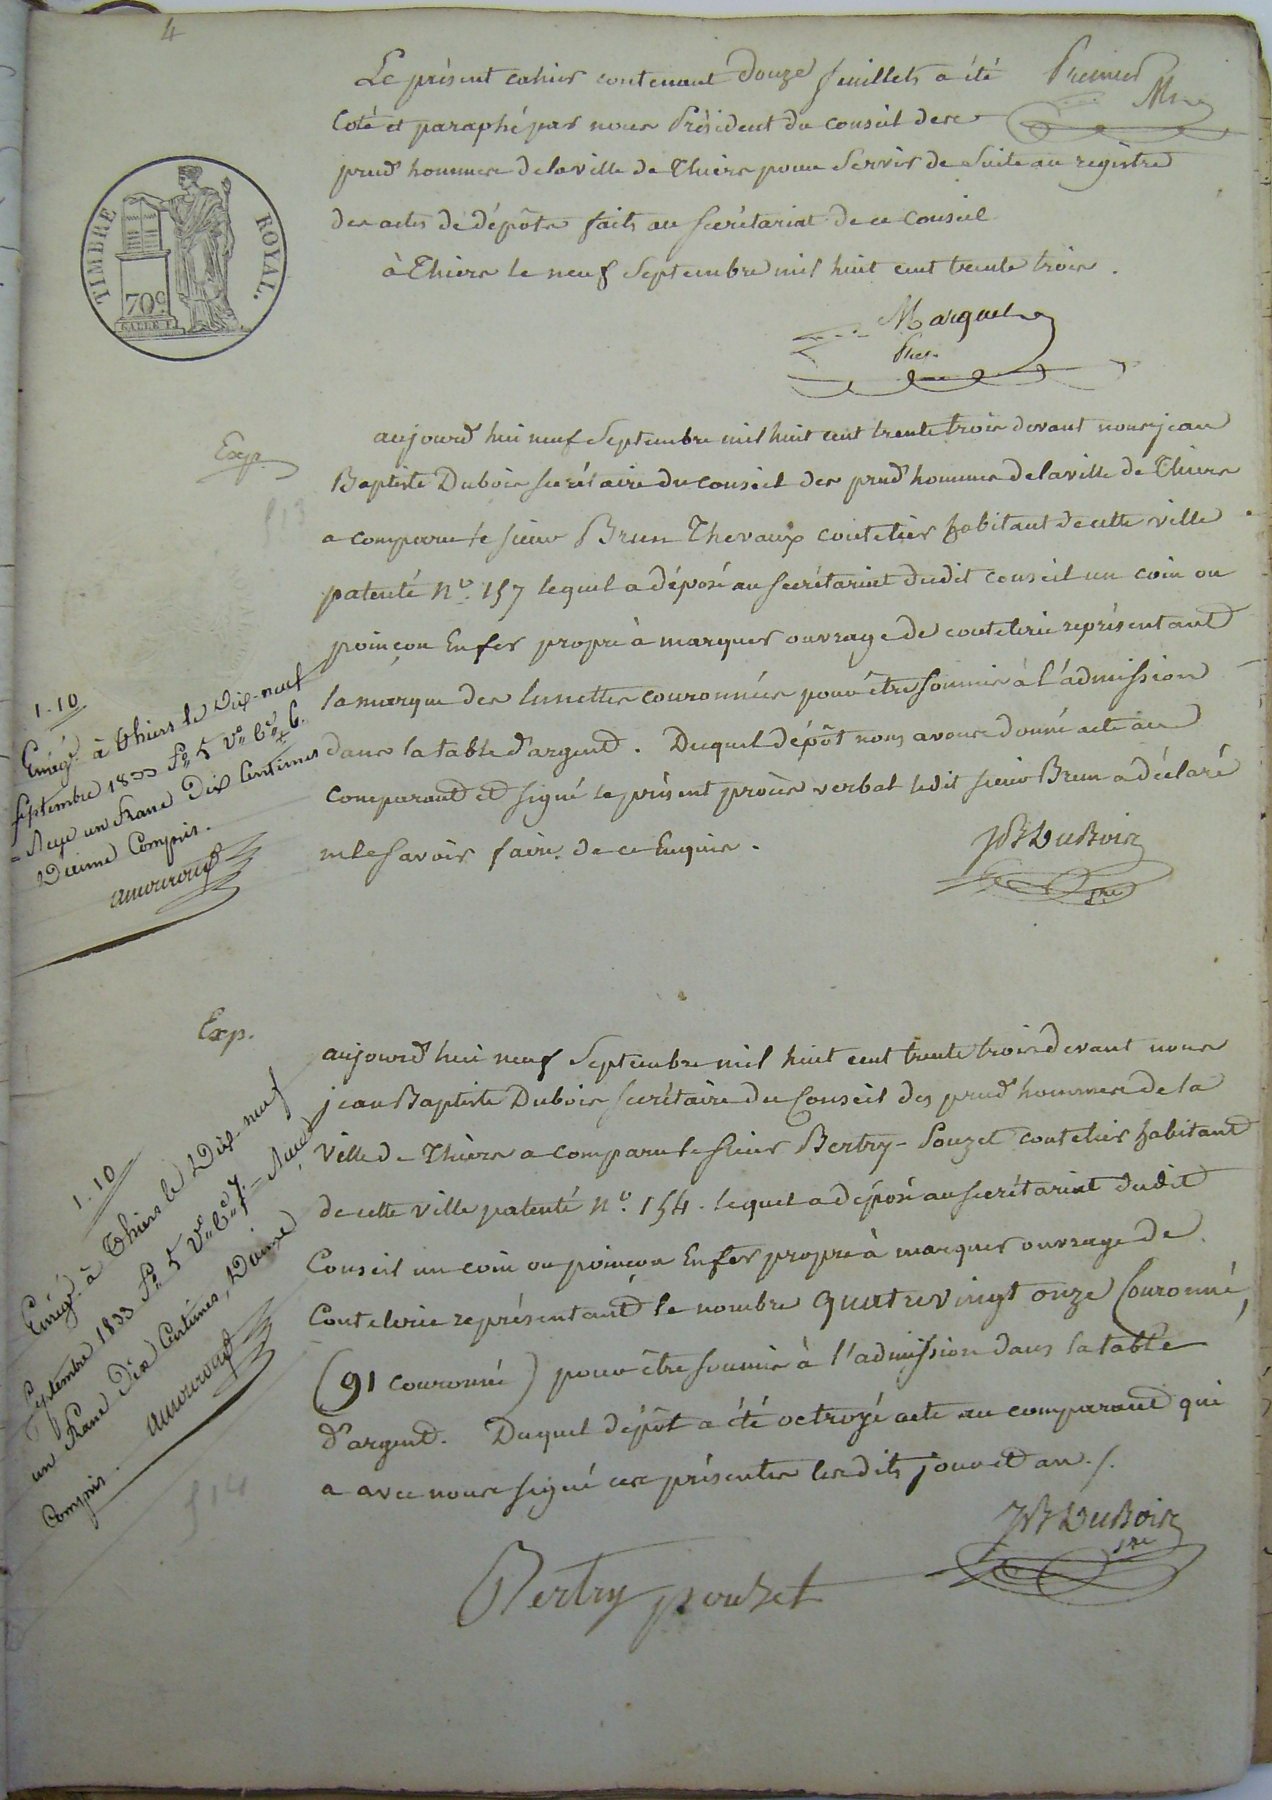 4
Le présent cahier contenant douze feuillets a été
Premier
Coté et paraphé par nous Président du conseil des
prud'hommes de la ville de Thiers pour Servir de Suite au registre
des actes de dépôts faits au Secrétariat de ce Conseil
à Thiers le neuf Septembre mil huit cent trente trois.
TIMBRE ROYAL.
70c
Marquet
Pres.
Exp.
aujourd'hui neuf Septembre mil huit cent trente trois devant nous jean
Baptiste Dubois Secrétaire du conseil des prud'hommes de la ville de Thiers
a comparu le sieur Brun Thevaux coutelier habitant de cette ville
patenté N° 157 lequel a déposé au Secrétariat dudit conseil un coin ou
poinçon En fer propre à marquer ouvrage de coutelerie représentant
la marque des lunettes couronnées pour être soumis à l'admission
dans la table d'argent. Duquel dépôt nous avons donné acte au
comparant et signé le présent procès verbal ledit sieur Brun a déclaré
ne le Savoir faire de ce Enquis.
JB DuBois
Sre
513
1-10
Enregé. à Thiers le Dix-neuf
Septembre 1833 fo 5 Vo Ce 6.
Reçu un franc Dix Centimes
Dixième Compris.
Exp.
aujourd'hui neuf Septembre mil huit cent trente trois devant nous
jean Baptiste Dubois Secrétaire du Conseil des prud'hommes de la
Ville de Thiers a comparu le sieur Bertry-Pouzet coutelier habitant
de cette ville patenté N° 154. lequel a déposé au Secrétariat dudit
Conseil un coin ou poinçon En fer propre à marquer ouvrage de
Coutelerie représentant le nombre quatrevingt onze Couronné,
(91 couronné) pour être soumis à l'admission dans la table
d'argent. Duquel dépôt a été octroyé acte au comparant qui
a avec nous signé ces présentes lesdits jour et an./.
JB DuBois
Sre
Bertry pouzet
1-10
Enregé. à Thiers le Dix-neuf
Septembre 1833 fo 5 Vo Ce 7. Reçu
un franc Dix Centimes, Dixième
Compris.
514